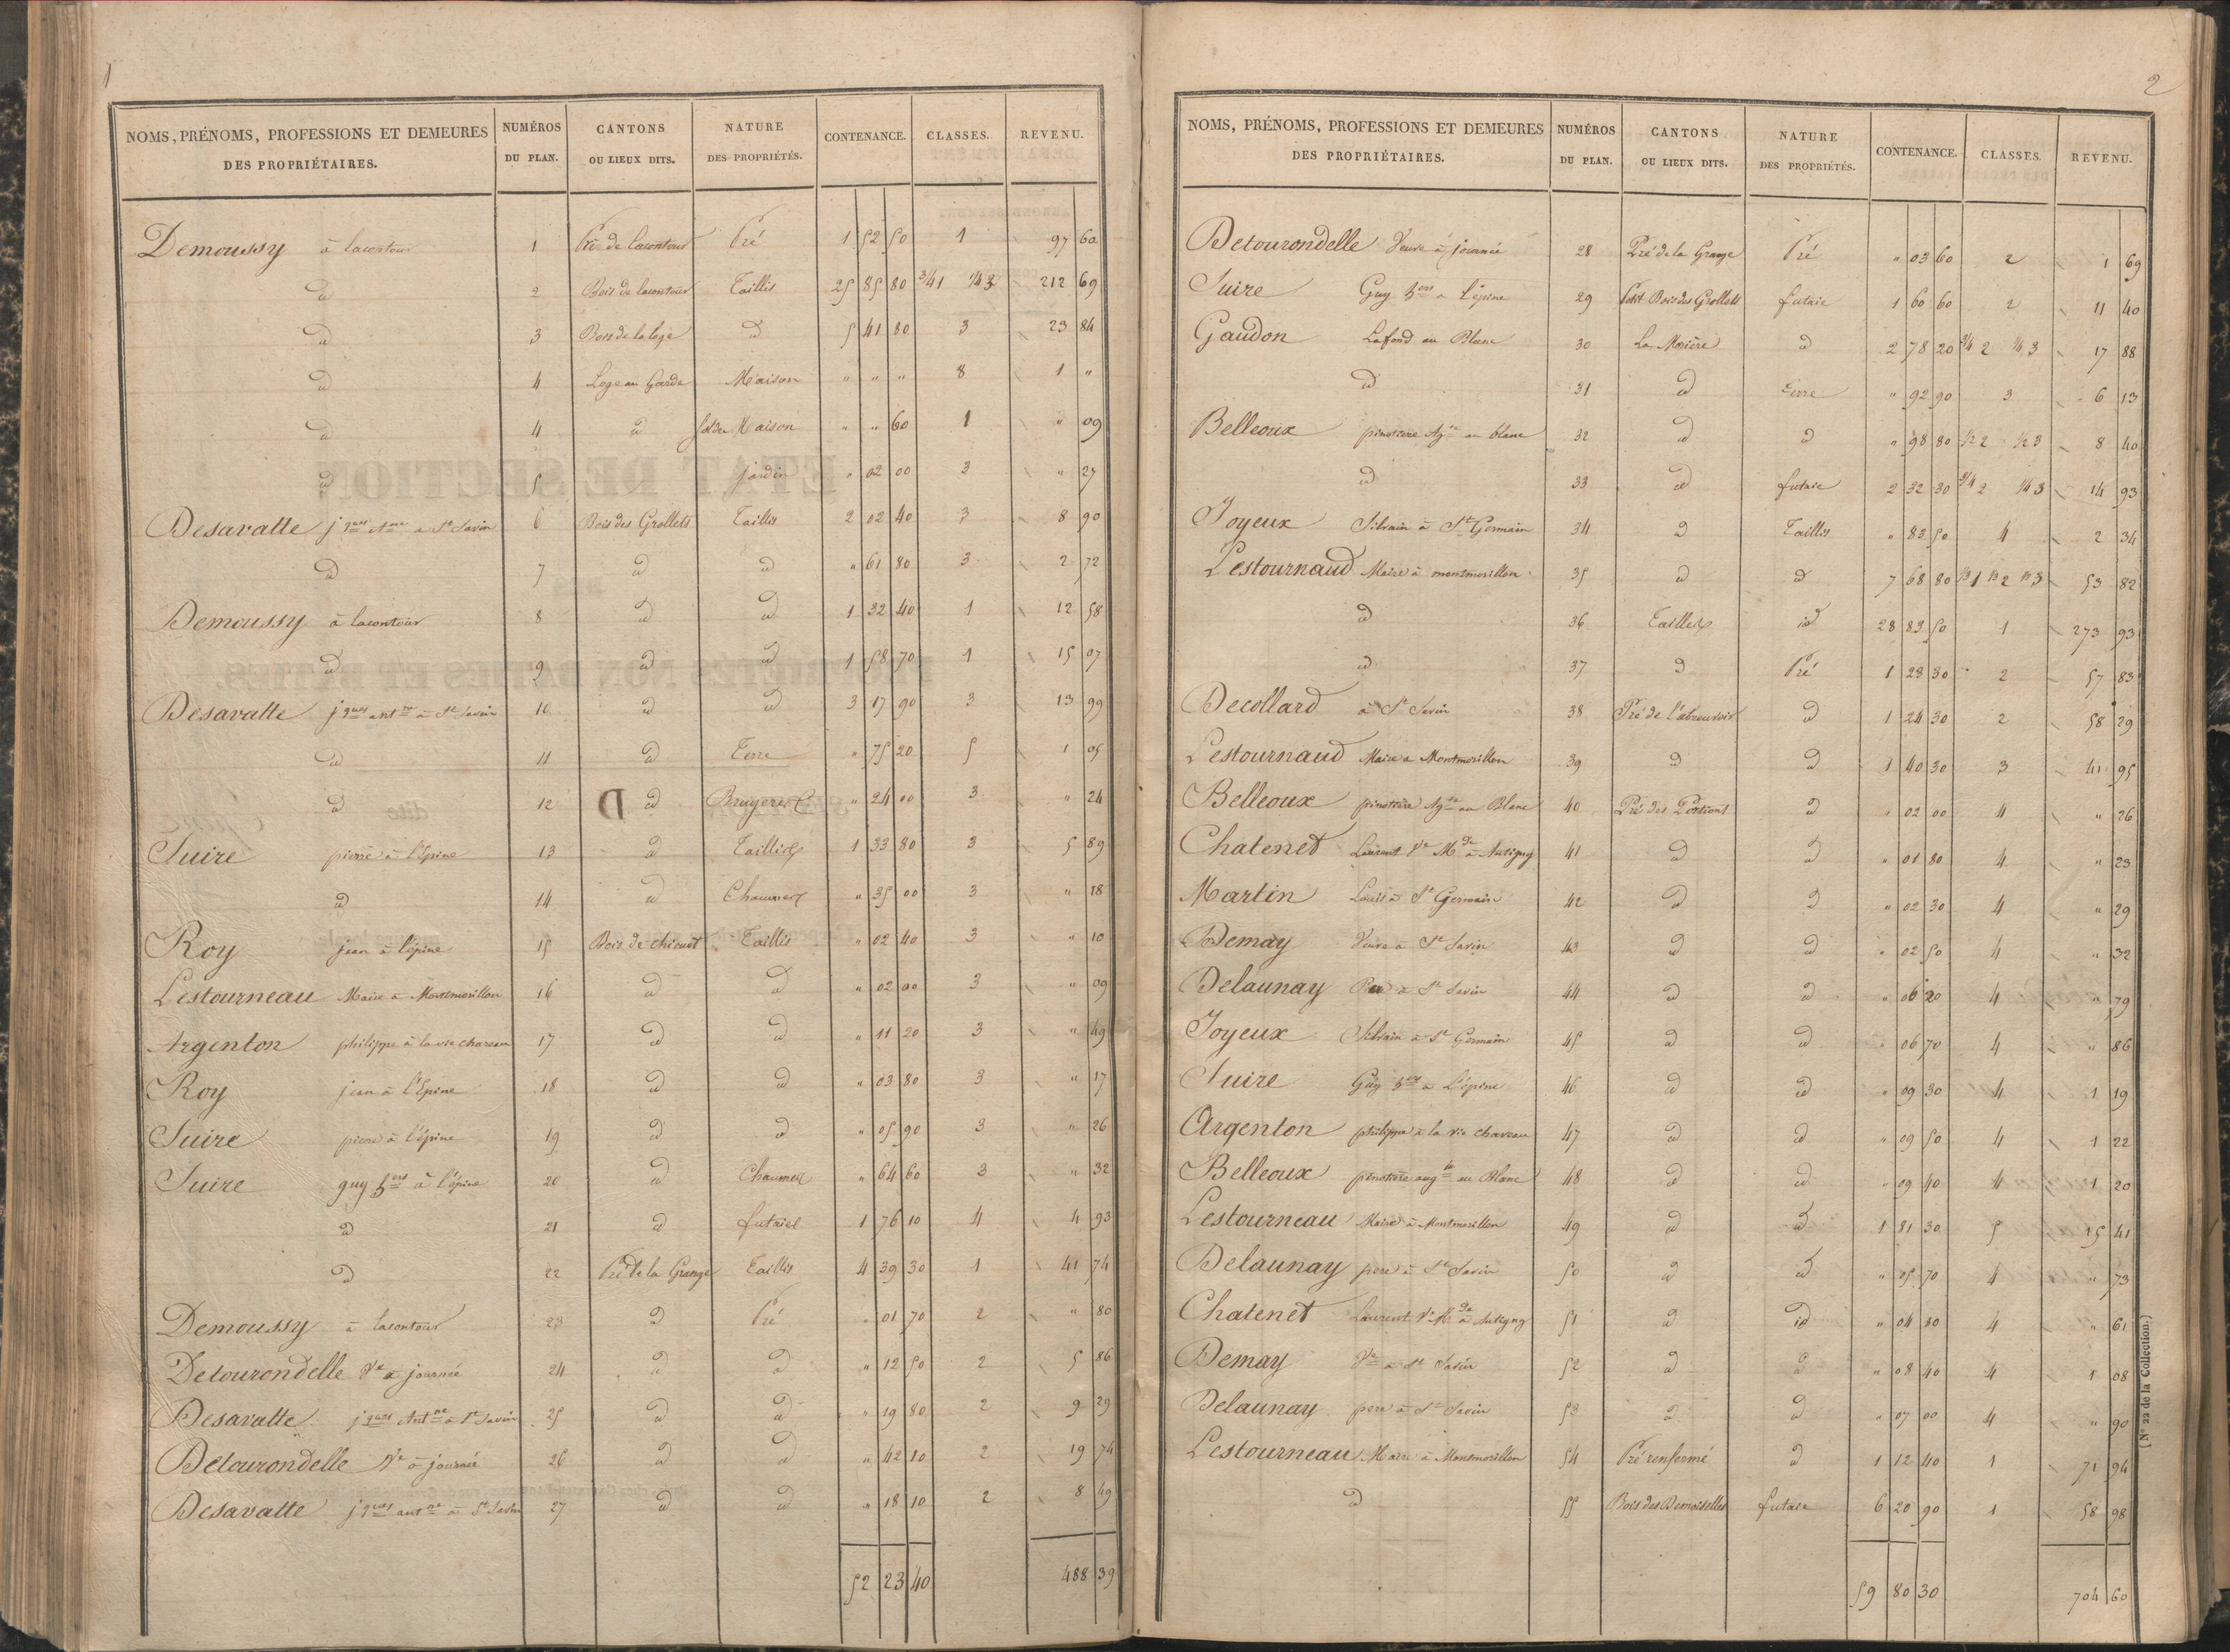 1
NOMS, PRÉNOMS, PROFESSIONS ET DEMEURES DES PROPRIÉTAIRES. NUMÉROS DU PLAN. CANTONS OU LIEUX DITS. NATURE DES PROPRIÉTÉS. CONTENANCE. CLASSES. REVENU.
Demoussy à lacontour 1 Pré de lacontour Pré 1 52 50 1 97 60
d 2 Bois de lacontour Taillis 25 85 80 3/4 1 1/4 3 212 69
d 3 Bois de la loge d 5 41 80 3 23 84
d 4 Loge au Garde Maison " " " 8 1 "
d 4 d sol de Maison " " 60 1 " 09
d 5 jardin " 02 00 3 " 27
Desavatte jques Ane a St Savin 6 Bois des Grollets Taillis 2 02 40 3 8 90
d 7 d d " 61 80 3 2 72
Demoussy à lacontour 8 d d 1 32 40 1 12 58
d 9 d d 1 58 70 1 15 07
Desavatte jques antne à St Savin 10 d d 3 17 90 3 13 99
d 11 d Terre " 75 20 5 1 05
d 12 d Bruyeres " 24 00 3 " 24
Suire pierre à l'Epine 13 d Taillis 1 33 80 3 5 89
d 14 d Chaumes " 35 00 3 " 18
Roy jean à l'épine 15 Bois de chicaut Taillis " 02 40 3 " 10
Lestourneau Maire a Montmorillon 16 d d " 02 00 3 " 09
Argenton philippe à la vie chaveau 17 d d " 11 20 3 " 49
Roy jean à l'Epine 18 d d " 03 80 3 " 17
Suire pierre à l'épine 19 d d " 05 90 3 " 26
Suire guy hers à l'épine 20 d Chaumes " 64 60 3 " 32
d 21 d futaie 1 76 10 4 4 93
d 22 Pré de la Grange Taillis 4 39 30 1 41 74
Demoussy à lacontour 23 d Pré " 01 70 2 " 80
Detourondelle Ve a journé 24 d d " 12 50 2 5 86
Desavatte jques Antne à St Savin 25 d d " 19 80 2 9 29
Detourondelle Ve à journé 26 d d " 42 10 2 19 74
Desavatte jques antne à St Savin 27 d d " 18 10 2 8 49
52 23 40 488 39
2
NOMS, PRÉNOMS, PROFESSIONS ET DEMEURES DES PROPRIÉTAIRES. NUMÉROS DU PLAN. CANTONS OU LIEUX DITS. NATURE DES PROPRIÉTÉS. CONTENANCE. CLASSES. REVENU.
Detourondelle Veuve à journée 28 Pré de la Grange Pré " 03 60 2 1 69
Suire Guy hers a l'épine 29 Petit Bois des Grollets futaie 1 60 60 2 11 40
Gaudon Lafond au Blanc 30 La Morière d 2 78 20 3/4 2 1/4 3 17 88
d 31 d Terre " 92 90 3 6 13
Belleoux pinotiere Agte au blanc 32 d d " 98 80 1/2 2 1/2 3 8 40
d 33 d futaie 2 32 30 3/4 2 1/4 3 14 93
Joyeux Silvain à St Germain 34 d Taillis " 83 50 4 2 34
Lestournaud Maire à montmorillon 35 d d 7 68 80 1/3 1 1/3 2 1/3 3 53 82
d 36 Tailles id 28 83 50 1 273 93
d 37 d Pré 1 23 30 2 57 83
Decollard à St Savin 38 Pré de l'abreuvoir d 1 24 30 2 58 29
Lestournaud Maire a Montmorillon 39 d d 1 40 30 3 41 95
Belleoux pinotiere Agte au Blanc 40 Pré des Portions d " 02 00 4 " 26
Chatenet Laurent Ve Mde à Antigny 41 d d " 01 80 4 " 23
Martin Louis à St Germain 42 d d " 02 30 4 " 29
Demay Veuve a St Savin 43 d d " 02 50 4 " 32
Delaunay a St Savin 44 d d " 06 20 4 " 79
Joyeux Silvain à St Germain 45 d d " 06 70 4 " 86
Suire Guy hers a L'épine 46 d d " 09 30 4 1 19
Argenton philippe à la vie chaveau 47 d d " 09 50 4 1 22
Belleoux penotiere augte au Blanc 48 d d " 09 40 4 1 20
Lestourneau Maire à Montmorillon 49 d d 1 81 30 5 15 41
Delaunay pere à St Savin 50 d d " 05 70 4 " 73
Chatenet Laurent Ve Mde à Antigny 51 d id " 04 80 4 " 61
Demay Ve a St Savin 52 d d " 08 40 4 1 08
Delaunay pere à St Savin 53 d d " 07 00 4 " 90
Lestourneau Maire à Montmorillon 54 Pré renfermé d 1 12 40 1 71 94
d 55 Bois des Demoiselles futaie 6 20 90 1 58 98
59 80 30 704 60
(No 22 de la Collection.)